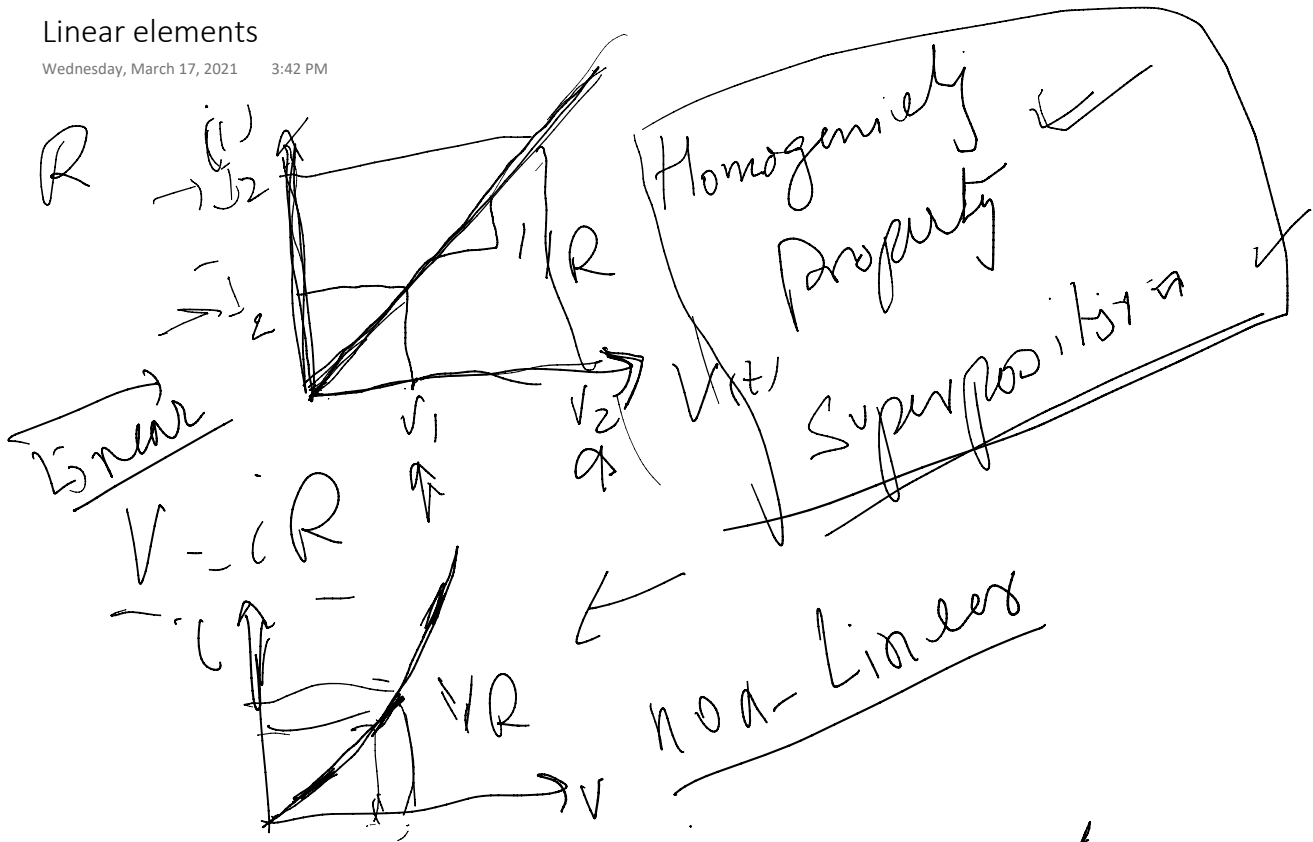 Linear elements
Wednesday, March 17, 2021 3:42 PM
R
I2
I2
1/R
V1
V2
V(t)
Homogeniety
Property
Superposition
Linear
V = iR
i
1/R
V
non-Linear